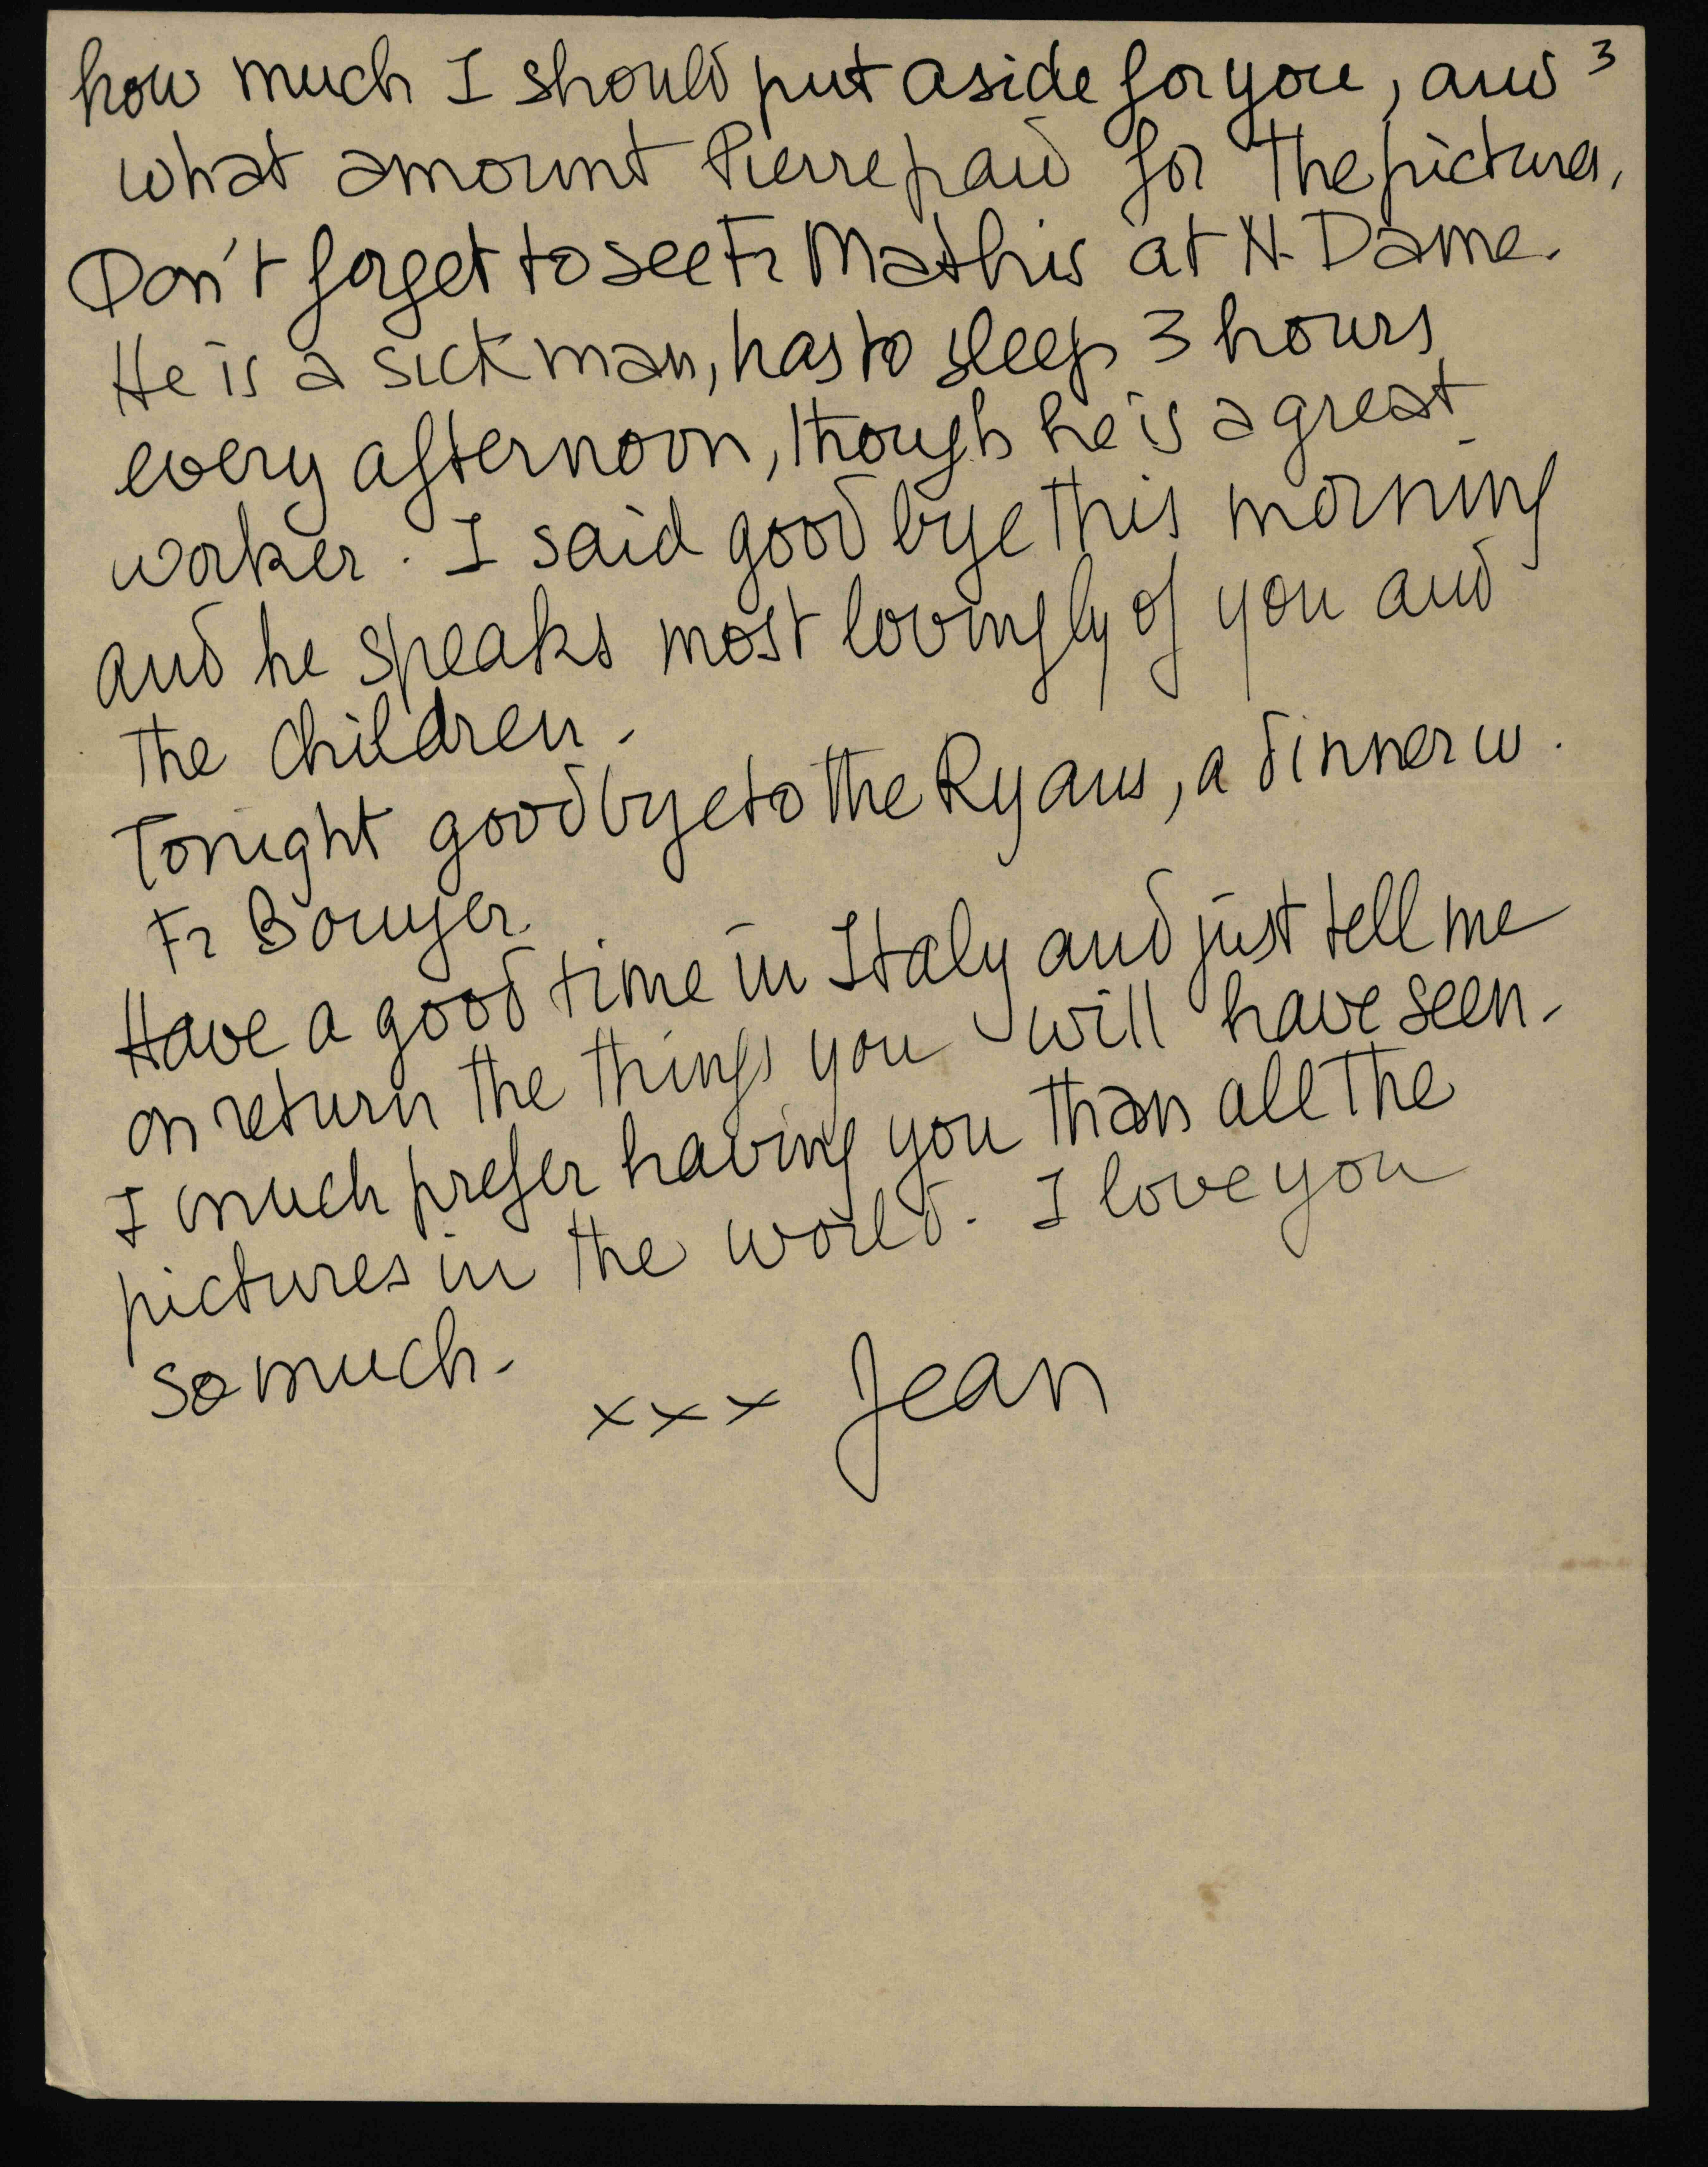 how much I should put aside for you, and 3
what amount Pierre paid for the pictures.
Don't forget to see Fr Mathis at N. Dame.
He is a sick man, has to sleep 3 hours
every afternoon, though he is a great
worker. I said goodbye this morning
and he speaks most lovingly of you and
the children.
Tonight goodbye to the Ryans, a dinner w.
Fr Bouyer.
Have a good time in Italy and just tell me
on return the things you will have seen.
I much prefer having you than all the
pictures in the world. I love you
so much.
xxx Jean